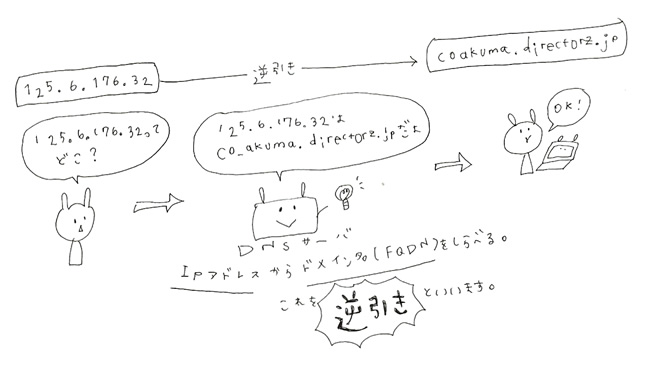 125.6.176.32
逆引き
coakuma.directorz.jp
125.6.176.32って
どこ?
125.6.176.32は
co_akuma.directorz.jpだよ
OK!
DNSサーバ
IPアドレスからドメイン名(FQDN)をしらべる。
これを逆引きといいます。